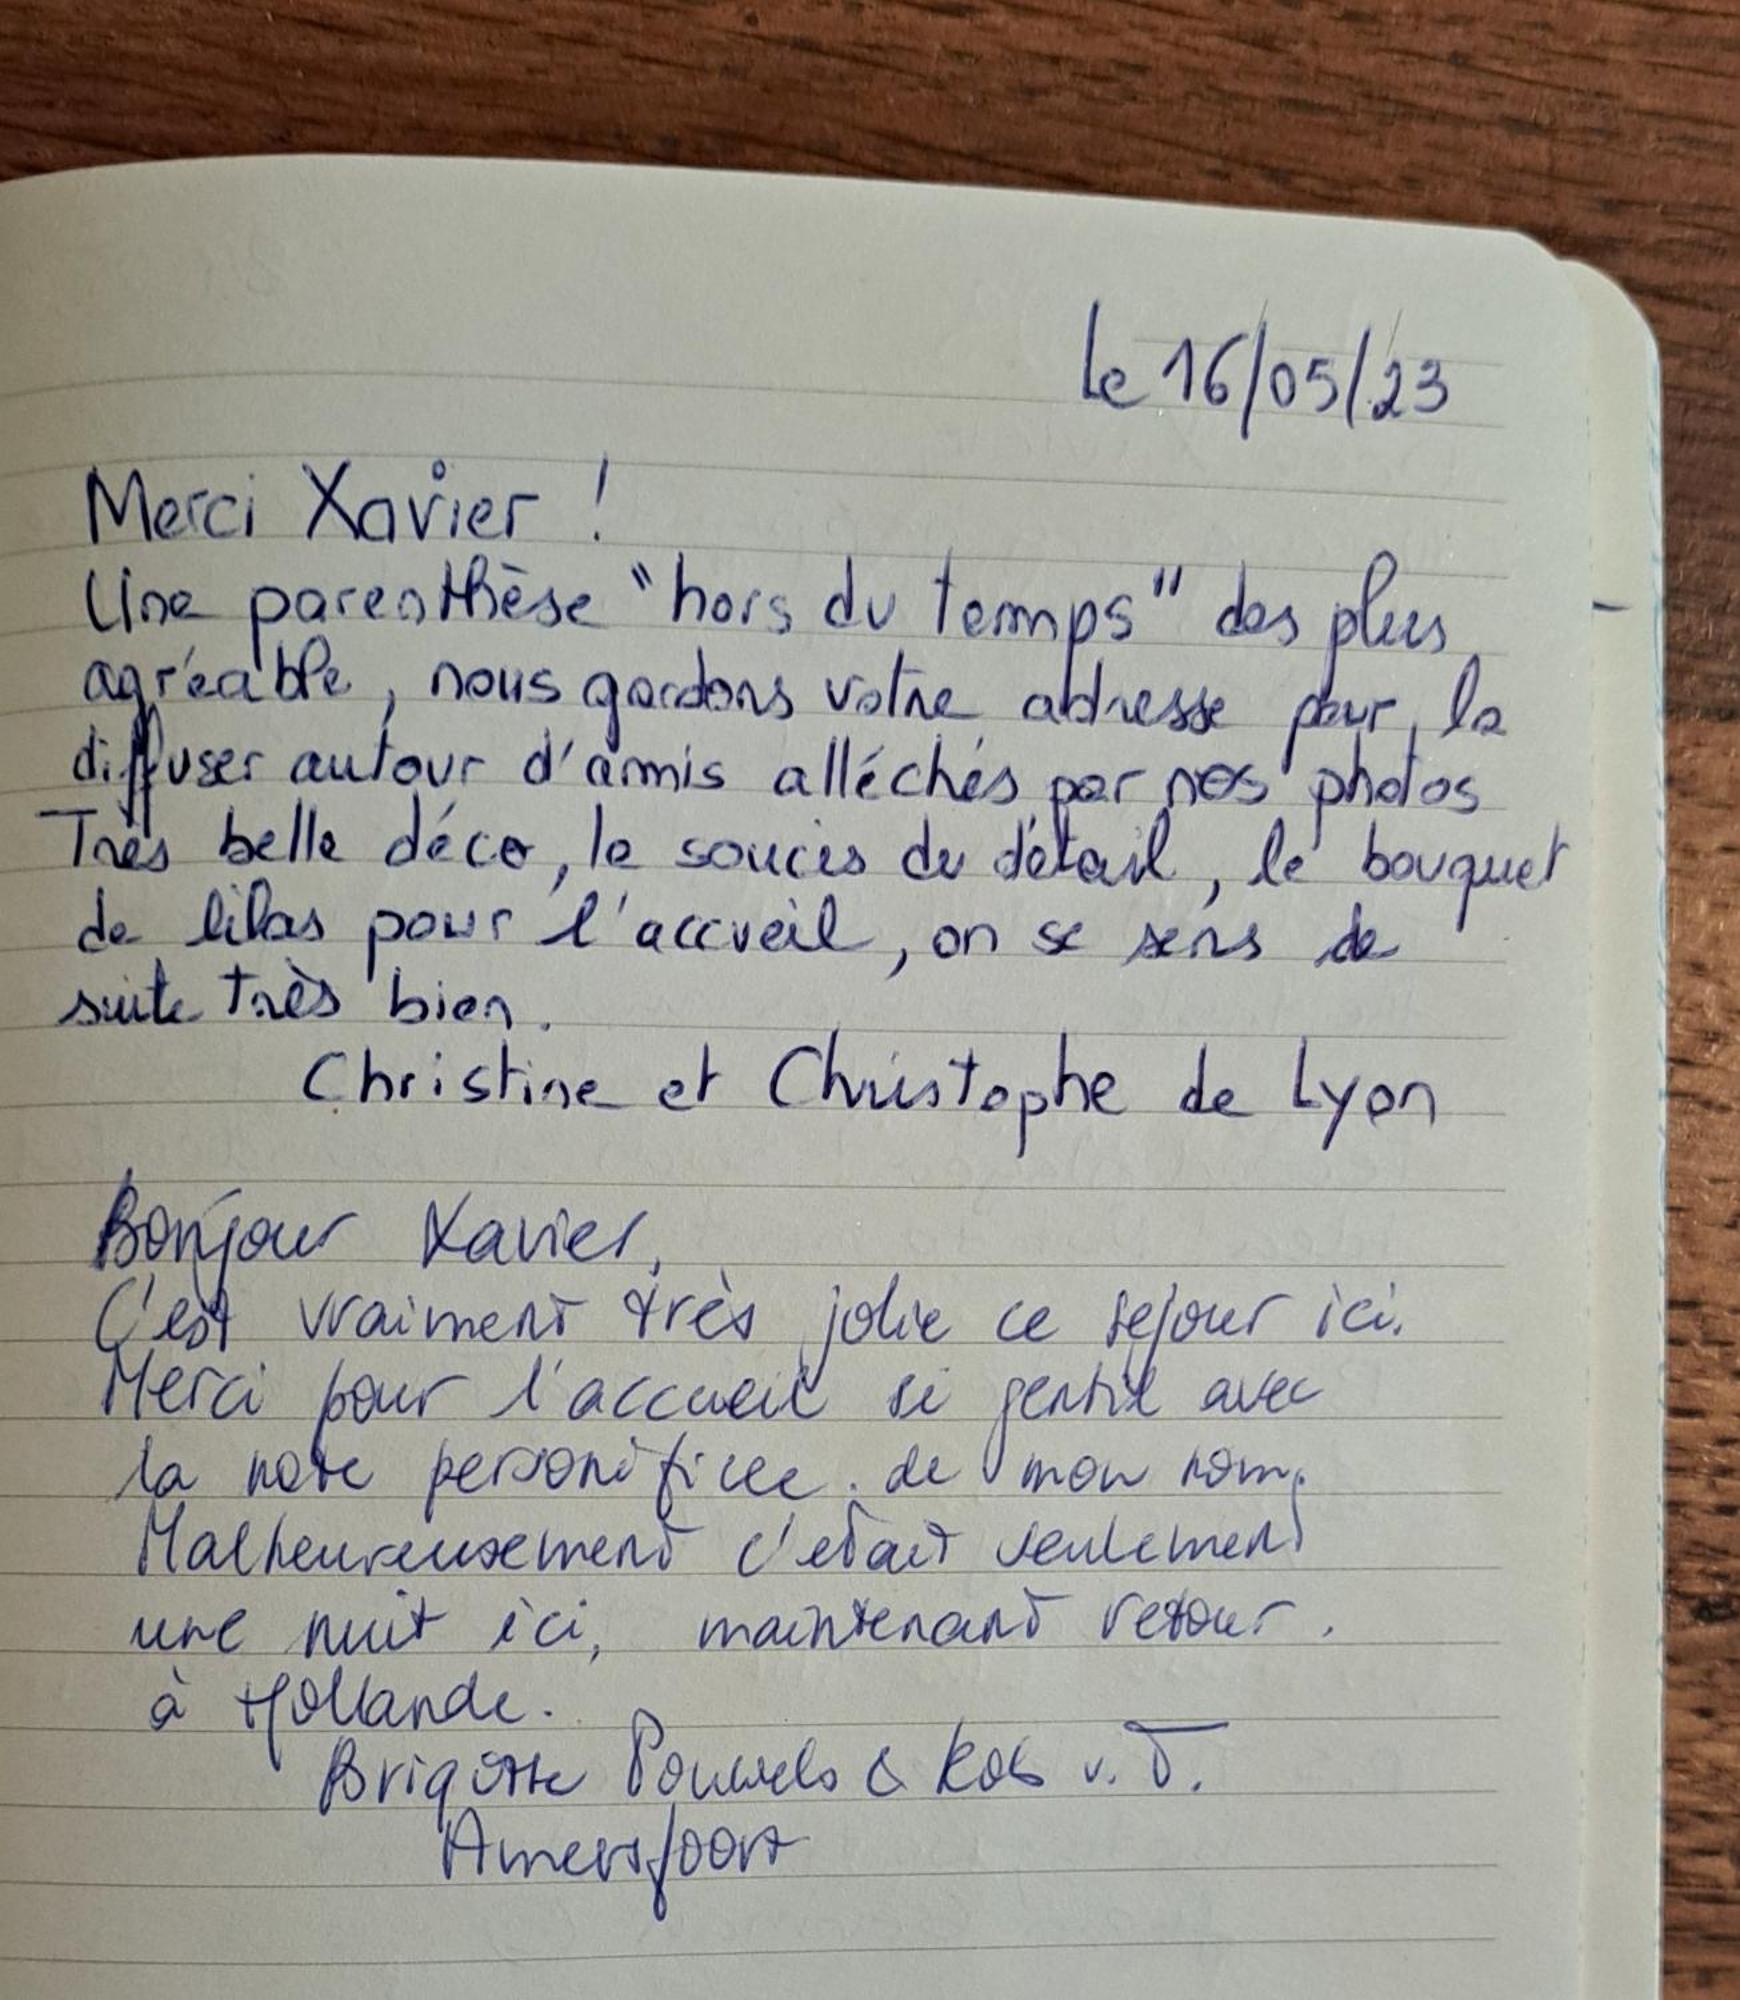 le 16/05/23
Merci Xavier !
Une parenthèse "hors du temps" des plus
agréable, nous gardons votre adresse pour la
diffuser autour d'amis alléchés par nos photos
Très belle déco, le soucis du détail, le bouquet
de lilas pour l'accueil, on se sens de
suite très bien.
Christine et Christophe de Lyon
Bonjour Xavier,
C'est vraiment très jolie ce sejour ici.
Merci pour l'accueil si gentil avec
la note personifiee de mon nom.
Malheureusement c'etait seulement
une nuit ici, maintenant retour
à Hollande.
Brigitte Pouwels & Rob v. T.
Amersfoort